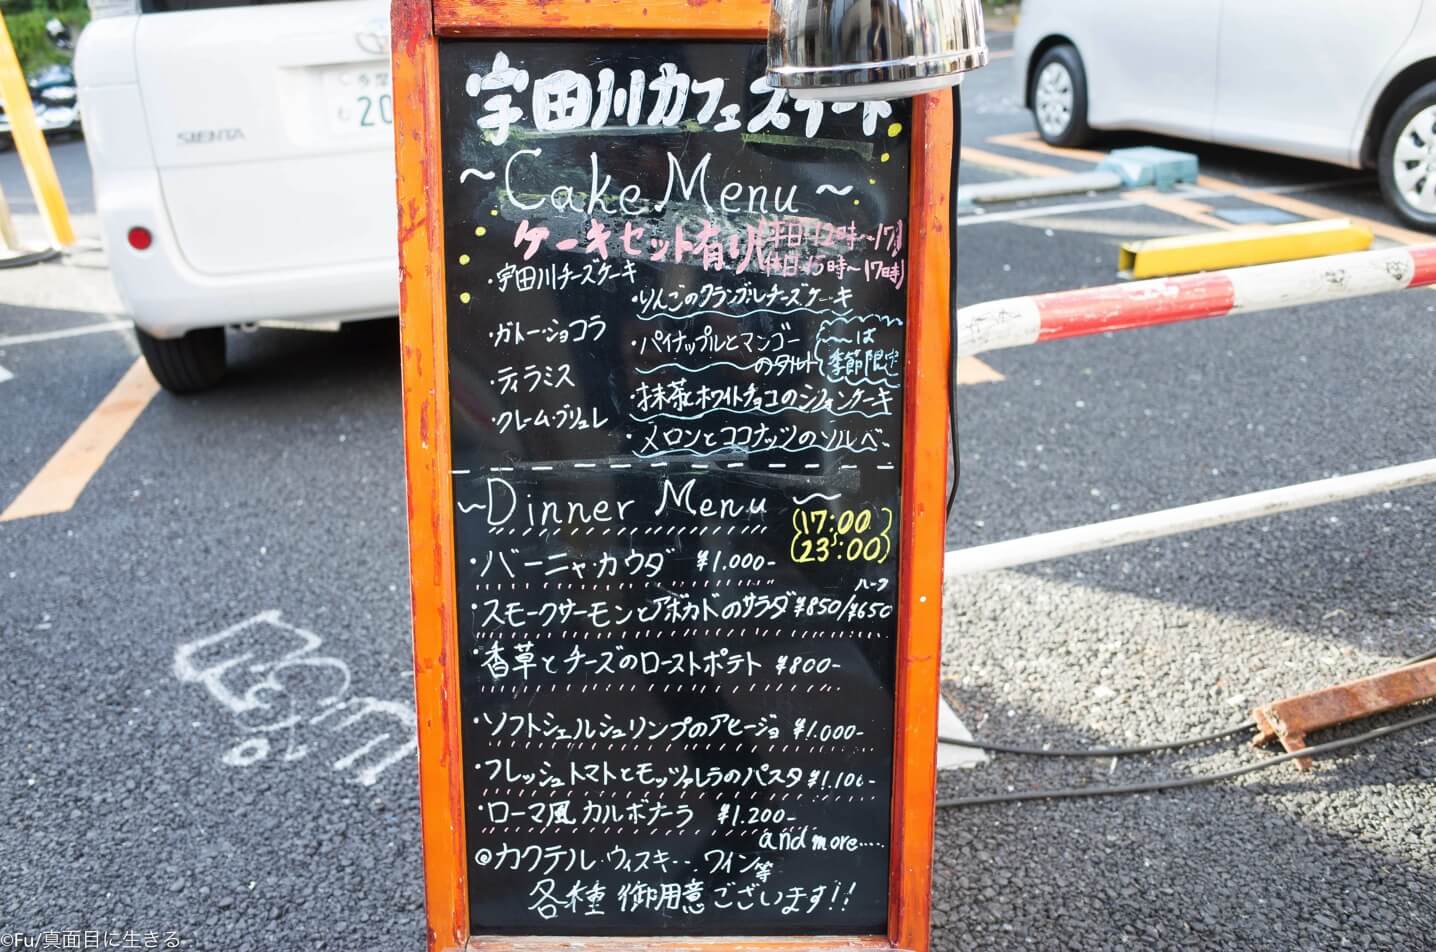 宇田川カフェスイート
~Cake Menu~
ケーキセット有り(平日・12時~17時
休日・15時~17時)
・宇田川チーズケーキ
・ガトーショコラ
・ティラミス
・クレーム・ブリュレ
・りんごのクランブルチーズケーキ
・パイナップルとマンゴー
のタルト
~~は
季節限定
・抹茶とホワイトチョコのシフォンケーキ
・メロンとココナッツのソルベ
~Dinner Menu~
(17:00~
23:00)
・バーニャ・カウダ ¥1.000-
ハーフ
・スモークサーモンとアボカドのサラダ ¥850/¥650
・香草とチーズのローストポテト ¥800-
・ソフトシェルシュリンプのアヒージョ ¥1.000-
・フレッシュトマトとモッツァレラのパスタ ¥1.100-
・ローマ風カルボナーラ ¥1.200-
and more.....
◎カクテル・ウィスキー・ワイン等
各種御用意ございます!!
SIENTA
多摩
20
©Fu/真面目に生きる